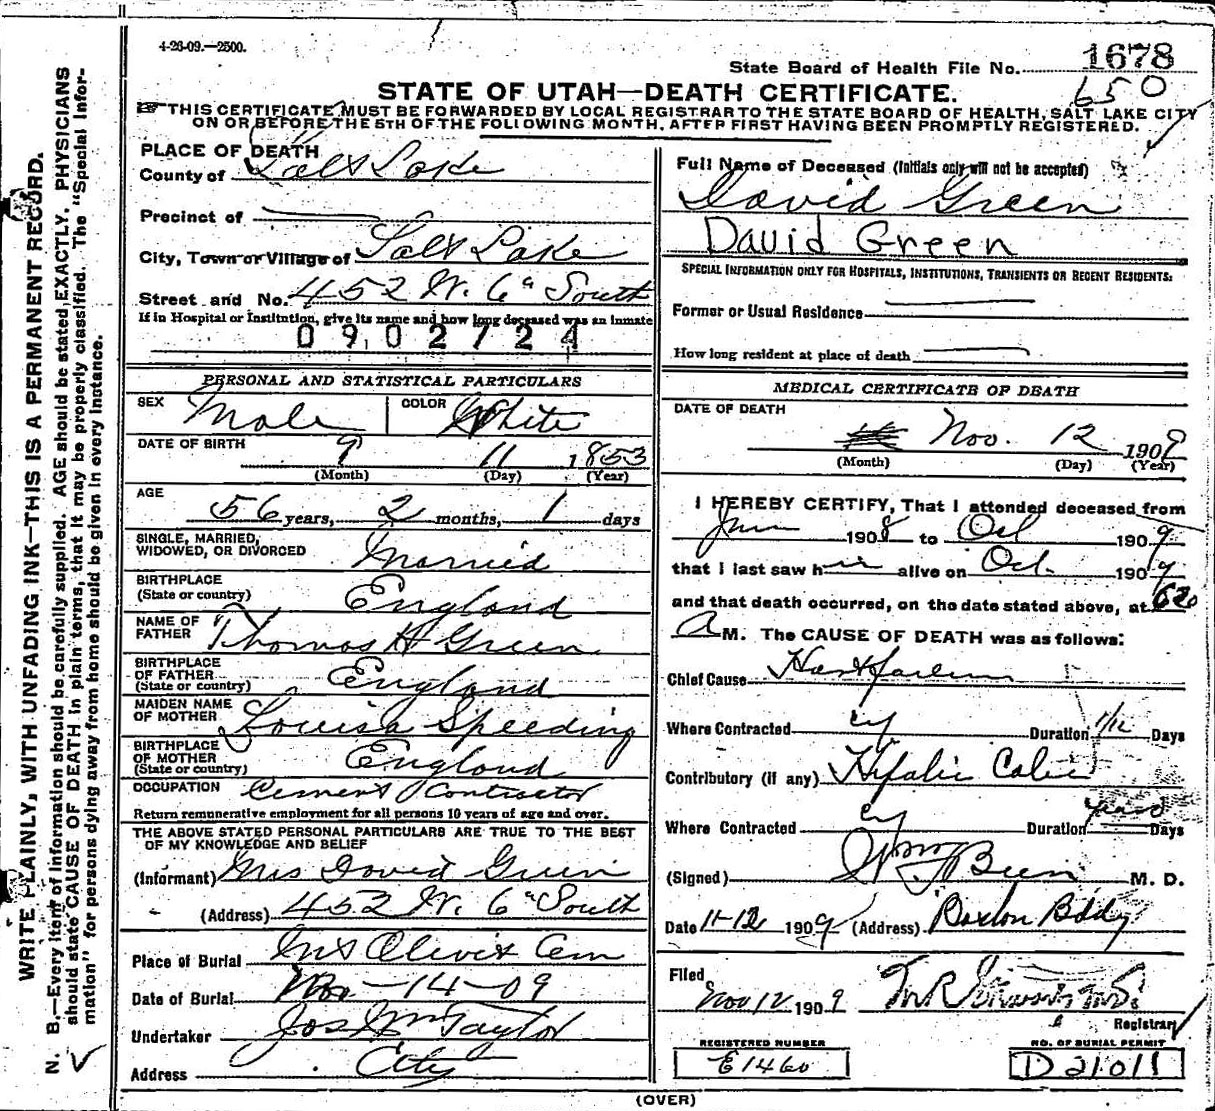 4-26-09.—2500.
State Board of Health File No. 1678
650
STATE OF UTAH—DEATH CERTIFICATE.
THIS CERTIFICATE MUST BE FORWARDED BY LOCAL REGISTRAR TO THE STATE BOARD OF HEALTH, SALT LAKE CITY
ON OR BEFORE THE 5TH OF THE FOLLOWING MONTH, AFTER FIRST HAVING BEEN PROMPTLY REGISTERED.
WRITE PLAINLY, WITH UNFADING INK—THIS IS A PERMANENT RECORD.
N. B.—Every item of information should be carefully supplied. AGE should be stated EXACTLY. PHYSICIANS
should state CAUSE OF DEATH in plain terms, that it may be properly classified. The "Special Infor-
mation" for persons dying away from home should be given in every instance.
PLACE OF DEATH
County of Salt Lake
Precinct of
City, Town or Village of Salt Lake
Street and No. 452 W. 6th South
If in Hospital or Institution, give its name and how long deceased was an inmate
0902724
PERSONAL AND STATISTICAL PARTICULARS
SEX Male COLOR White
DATE OF BIRTH 9 11 1853
(Month) (Day) (Year)
AGE
56 years, 2 months, 1 days
SINGLE, MARRIED,
WIDOWED, OR DIVORCED Married
BIRTHPLACE
(State or country) England
NAME OF
FATHER Thomas H Green
BIRTHPLACE
OF FATHER
(State or country) England
MAIDEN NAME
OF MOTHER Louisa Speeding
BIRTHPLACE
OF MOTHER
(State or country) England
OCCUPATION Cement Contractor
Return remunerative employment for all persons 10 years of age and over.
THE ABOVE STATED PERSONAL PARTICULARS ARE TRUE TO THE BEST
OF MY KNOWLEDGE AND BELIEF
(Informant) Mrs David Green
(Address) 452 W. 6th South
Place of Burial Mt Olivet Cem
Date of Burial Nov-14-09
Undertaker Jos Wm Taylor
Address City
Full Name of Deceased (Initials only will not be accepted)
David Green
David Green
SPECIAL INFORMATION ONLY FOR HOSPITALS, INSTITUTIONS, TRANSIENTS OR RECENT RESIDENTS:
Former or Usual Residence
How long resident at place of death
MEDICAL CERTIFICATE OF DEATH
DATE OF DEATH
Nov. 12 1909
(Month) (Day) (Year)
I HEREBY CERTIFY, That I attended deceased from
1908 to Oct 1909
that I last saw him alive on Oct. 1909
and that death occurred, on the date stated above, at 620
A M. The CAUSE OF DEATH was as follows:
Chief Cause Heart failure
Where Contracted City Duration 1/12 Days
Contributory (if any) Hepatic Colic
Where Contracted City Duration years Days
(Signed) M. D.
Date 11-12 1909 (Address) Boston Bldg
Filed
Nov 12 1909
Registrar
REGISTERED NUMBER
E1460
NO. OF BURIAL PERMIT
D 21011
(OVER)